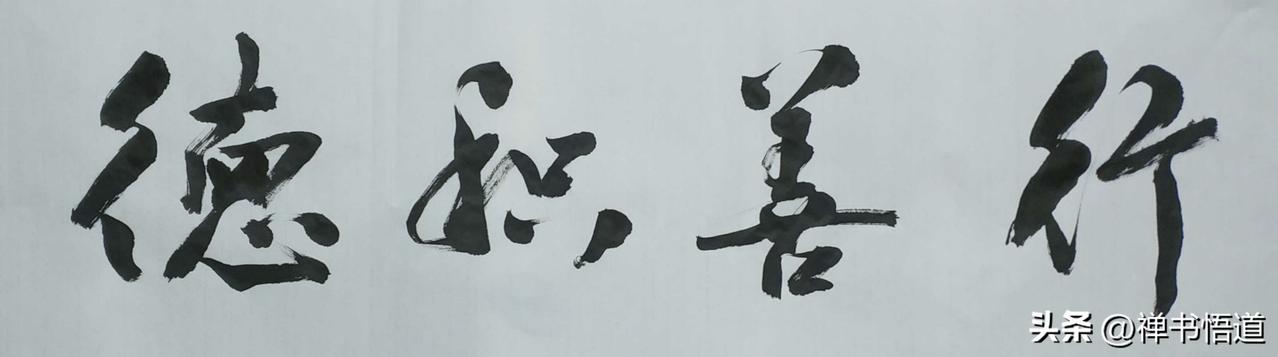 行善积德
头条 @禅书悟道